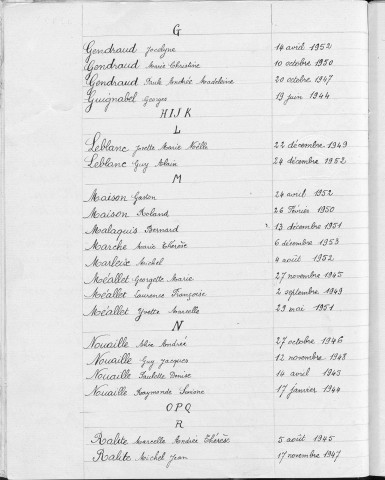 G
Gendraud Jocelyne 14 avril 1952
Gendraud Marie Christine 10 octobre 1950
Gendraud Paule Andrée Madeleine 20 octobre 1947
Guignabel Georges 19 juin 1944
HIJK
L
Leblanc Josette Marie Noëlle 22 décembre 1949
Leblanc Guy Alain 24 décembre 1952
M
Maison Gaston 24 avril 1952
Maison Roland 26 Février 1950
Malaquis Bernard 13 décembre 1951
Marche Marie Thérèse 6 décembre 1953
Marleix Michel 4 août 1952
Méallet Georgette Marie 27 novembre 1945
Méallet Laurence Françoise 2 septembre 1949
Méallet Yvette Marcelle 23 mai 1951
N
Nouaille Aline Andrée 27 octobre 1946
Nouaille Guy Jacques 12 novembre 1948
Nouaille Paulette Denise 14 avril 1945
Nouaille Raymonde 17 janvier 1944
OPQ
R
Ralite Marcelle Andrée Thérèse 5 août 1945
Ralite Michel Jean 17 novembre 1947